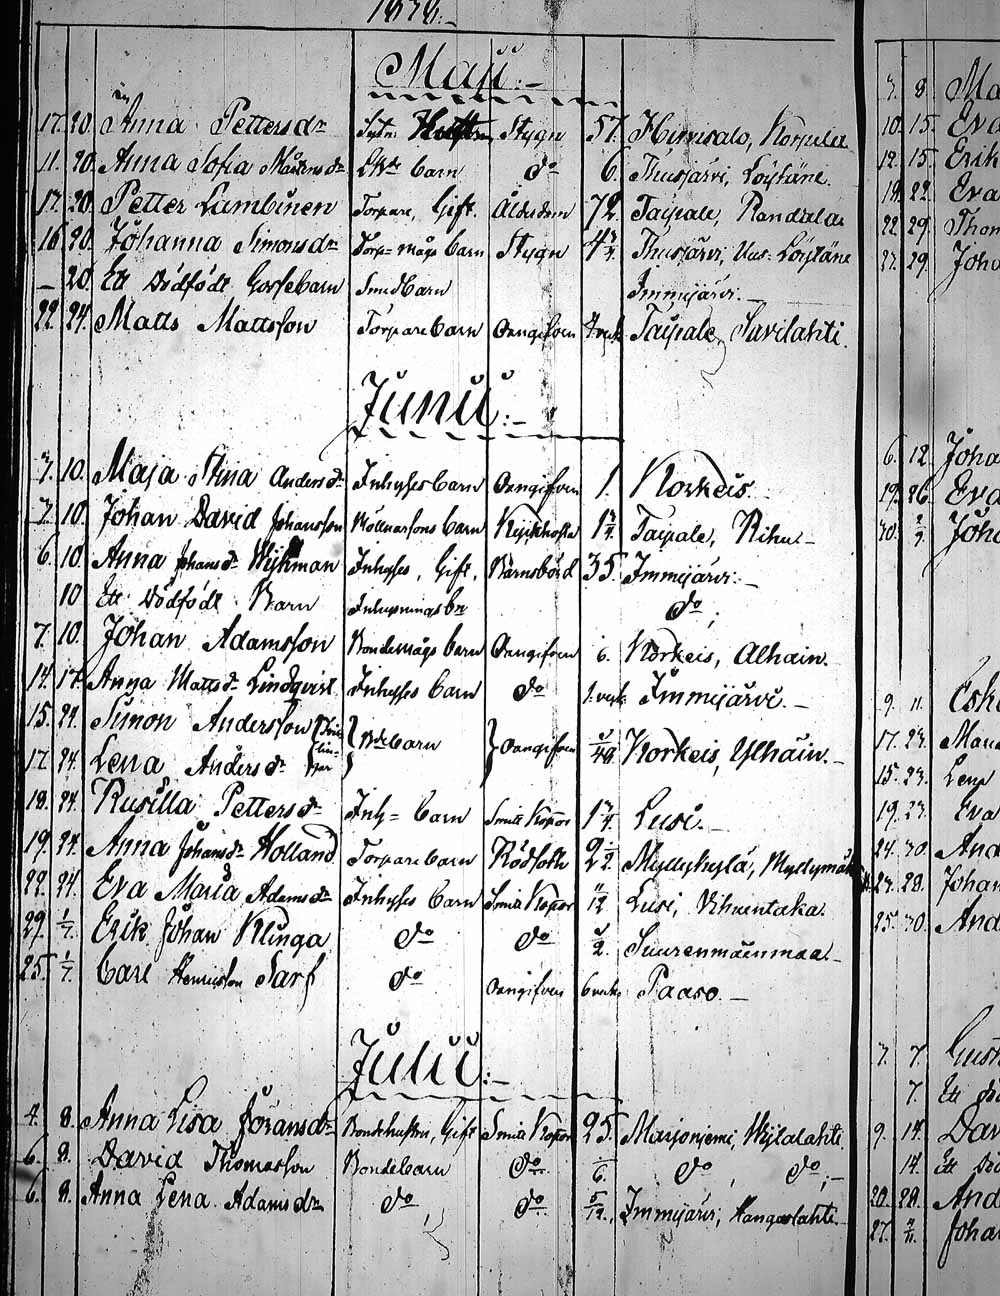 Maji:-
17. 20. Anna Pettersdr Stygn 57. Hirvisalo, Korpela
11. 20. Anna Sofia Mårtensdr barn do 6. Thusjärvi, Löytäne.
17. 20. Petter Lumbinen Torpare, Gift. Ålderdom 72. Taipale, Randala
16 20. Johanna Simonsdr Torp= mågs barn Stygn 4 3/4. Thusjärvi, Uus-Löytäne
— 20. Ett Dödfödt Gossebarn Smedbarn Immijärvi.-
22. 24. Matts Mattsson Torparebarn Oangifven Taipale, Savilahti.
Junii:-
7. 10. Maja Stina Andersdr Inhysesbarn Oangifven 1. Korkeis.
7. 10. Johan David Johansson Möllnarsons barn Kikhosta 1 3/4. Taipale, Rihu-
6. 10. Anna Johansdr Wijkman Inhyses, Gift, Barnsbörd 35. Immijärvi:-
10 Ett Dödfödt Barn do,
7. 10. Johan Adamsson Bondemågs barn Oangifven 6. Korkeis, Alhain.
14. 17. Anna Mattsdr Lindqvist Inhyses barn do 1. veck Immijärvi.-
15. 24. Simon Andersson barn Oangifven Korkeis, Ylhäin.-
17. 24. Lena Andersdr
18. 24. Rusilla Pettersdr Inh= barn Smitt Kopor 1 3/4 Lusi.-
19. 24. Anna Johansdr Holland Torparebarn Rödsoth 2 1/2. Myllykylä, Myllymäki
22. 24. Eva Maria Adamsdr Inhyses barn Smitt Kopor 11/12 Lusi, Vihuntaka.
29. 1/7. Erik Johan Klinga do do 1/2. Suurenmäenmaa-
25. 1/7. Carl Henricsson Sarf do oangifven 6 veck. Paaso.-
Julii:-
4. 8. Anna Lisa Göransdr Bondehustru, Gift Smitt Kopor 25. Marjoniemi, Wijlalahti
6. 8. David Thomasson Bondebarn do 1/6. do, do,-
6. 8. Anna Lena Adamsdr do, do 5/12. Immijärvi, Kangaslahti-
7. 8. Ma
10. 15. Eva
12. 15. Erik
18. 22. Eva
22. 29. Thom
27. 29. Joha
6. 12. Joha
19. 26. Eva
30. 2/7. Joha
9. 11. Esk
17. 23. Man
15. 23. Lena
19. 23. Eva
24. 30. And
23. 28. Johan
25. 30. And
7. 7. Gust
7. Ett dö
9. 14. Dav
14. Ett dö
20. 28. And
27. 4/11. Joha